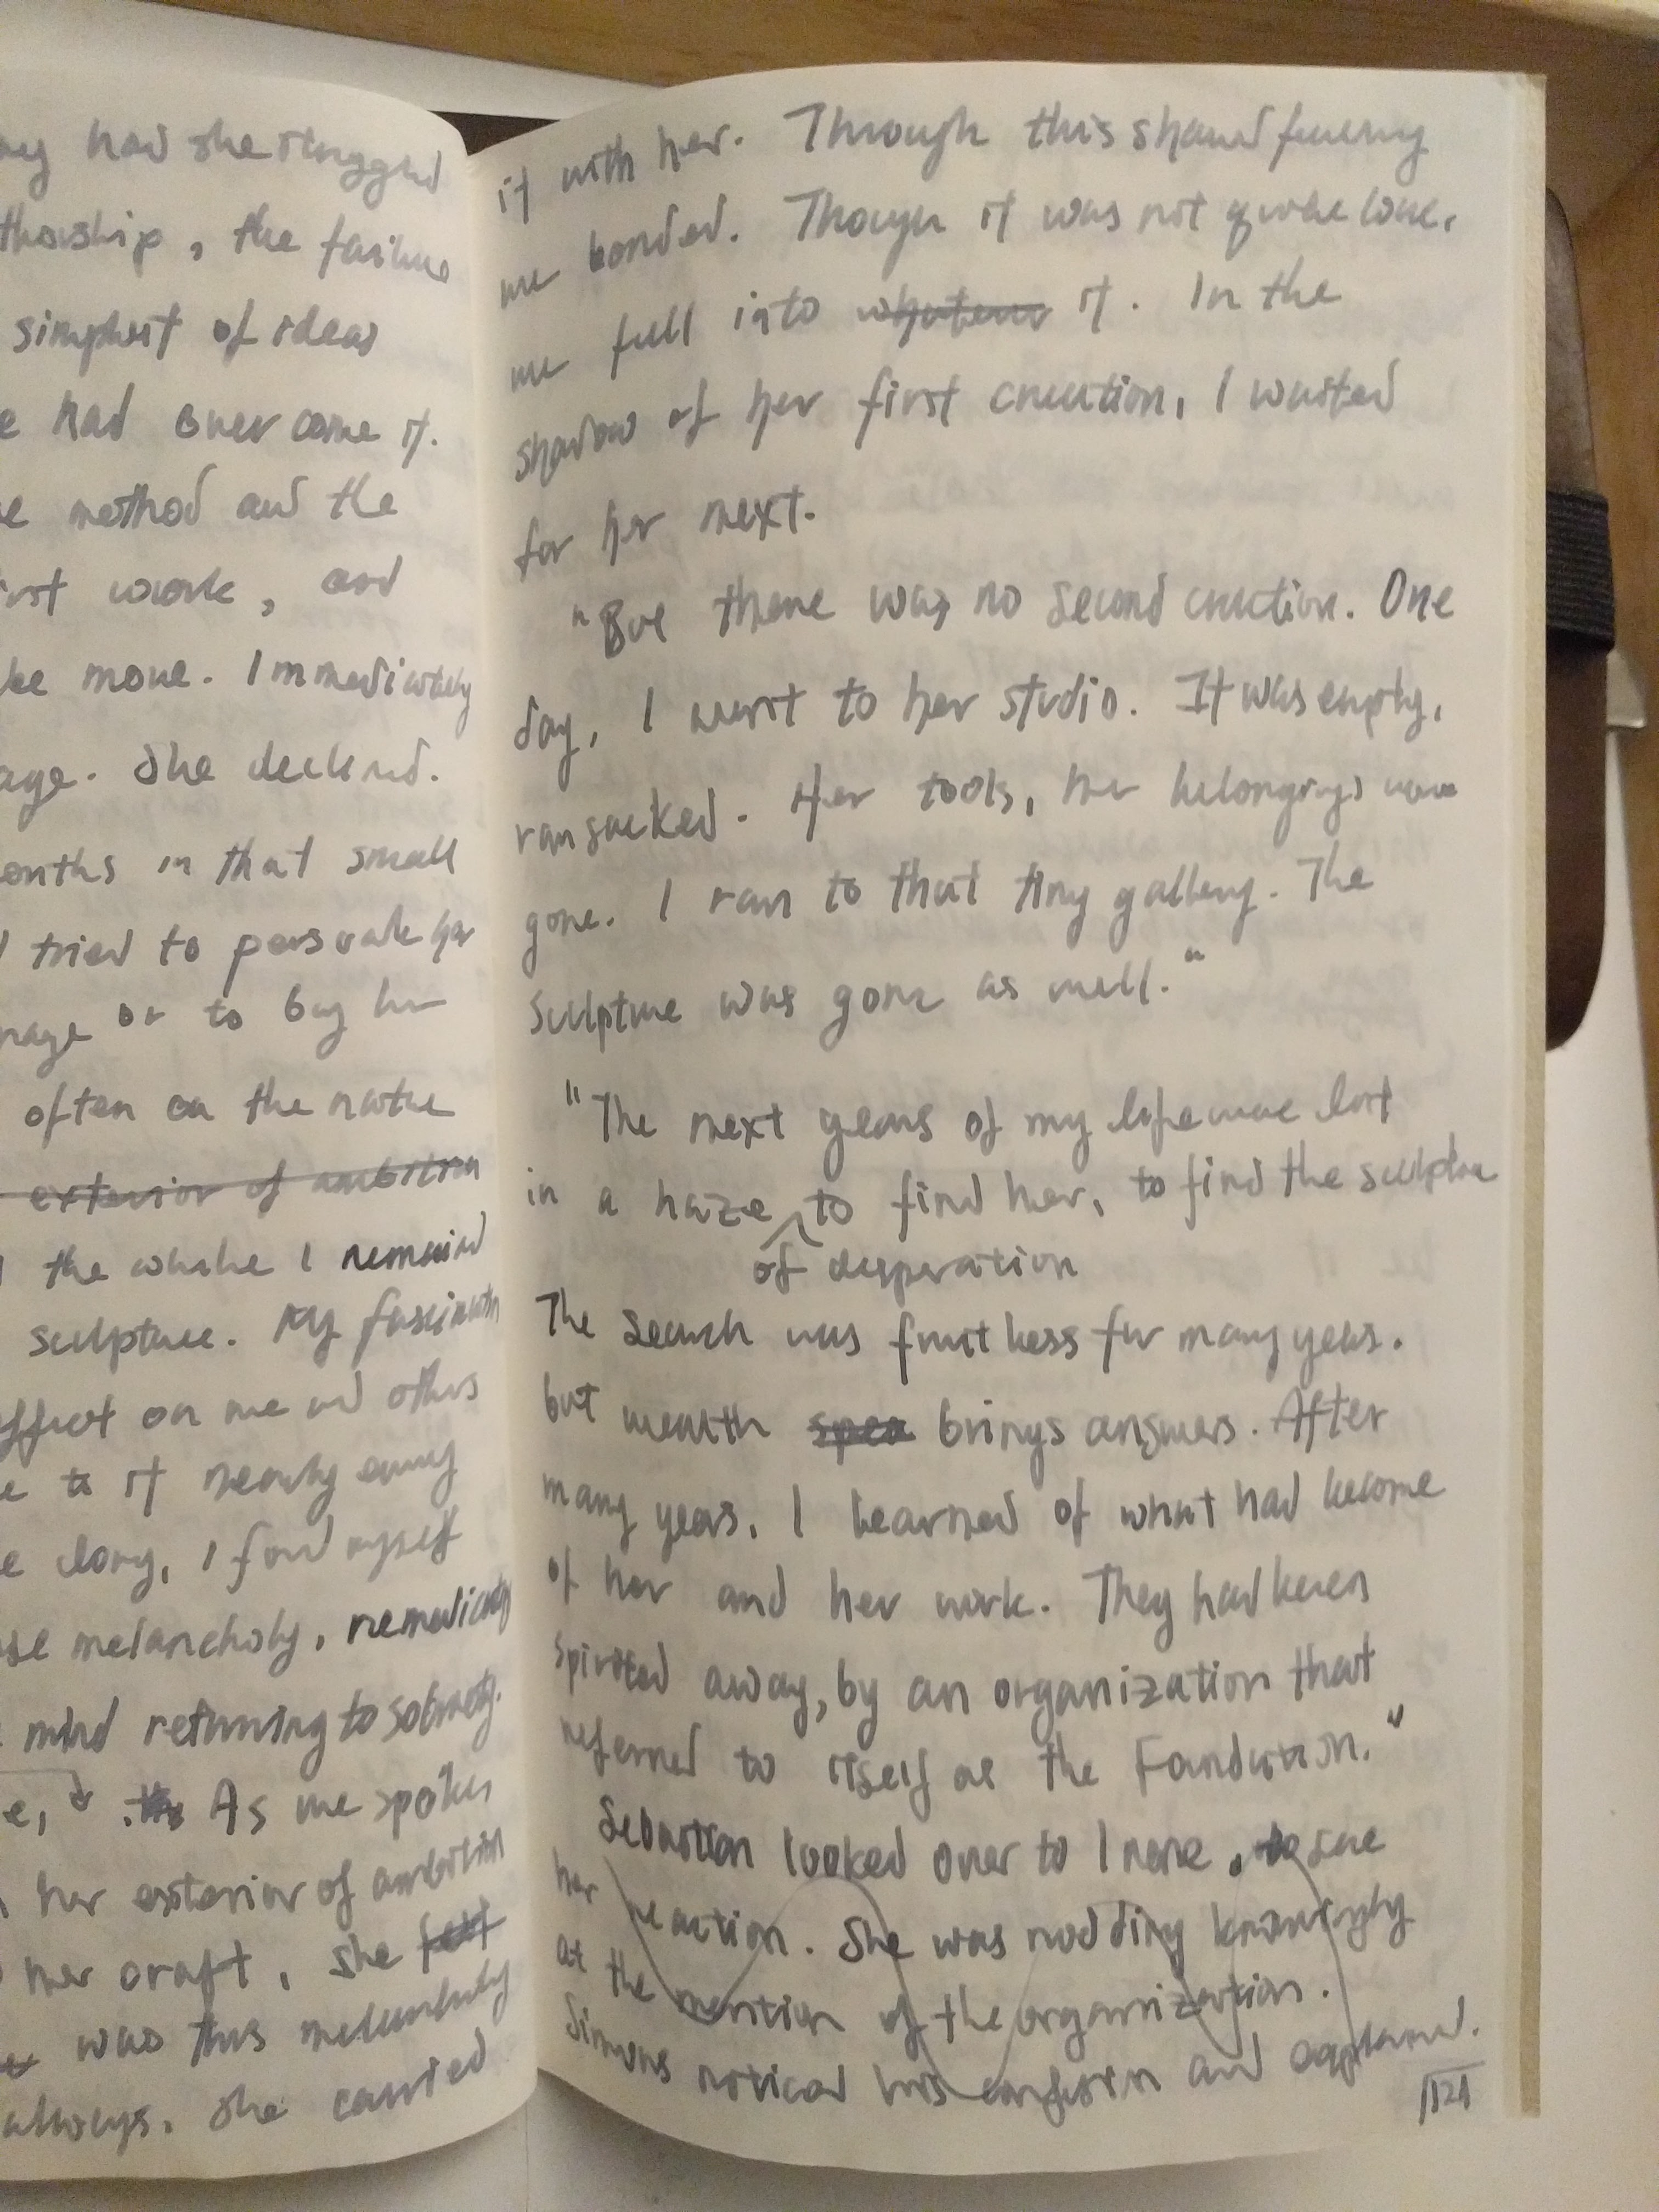 ny had she struggled
thorship, the failure
simplest of ideas
e had overcome it.
e method and the
irst work, and
ke more. Immediately
age. She declined.
onths in that small
I tried to persuade her
nage or to buy her
often on the nature
exterior of ambition
the while I remained
sculpture. My fascination
effect on me and others
e to it nearly every
e along, I found myself
se melancholy,
mind returning to
e, As we spoke
her exterior of ambition
her craft, she felt
was this melancholy
always. She carried
it with her. Through this shared feeling
we bonded. Though it was not quite love,
we fell into whatever it. In the
shadow of her first creation, I waited
for her next.
"But there was no second creation. One
day, I went to her studio. It was empty,
ransacked. Her tools, her belongings were
gone. I ran to that tiny gallery. The
sculpture was gone as well."
"The next years of my life were lost
in a haze to find her, to find the sculpture
of desperation
The search was fruitless for many years.
but wealth brings answers. After
many years, I learned of what had become
of her and her work. They had been
spirited away, by an organization that
referred to itself as the Foundation."
Sebastian looked over to Irene, to see
her reaction. She was nodding knowingly
at the mention of the organization.
Simons noticed his confusion and explained.
121